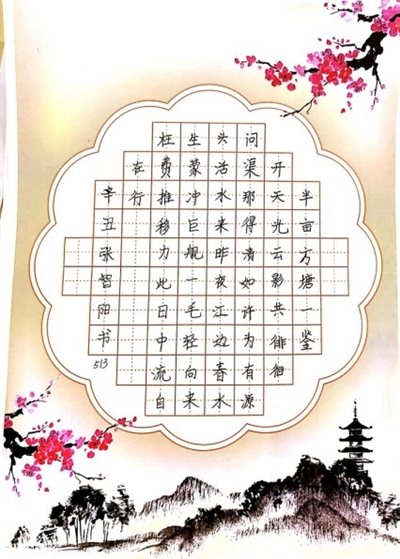 半亩方塘一鉴
开天光云影共徘徊
问渠那得清如许为有源
头活水来昨夜江边春水
生蒙冲巨舰一毛轻向来
枉费推移力此日中流自
在行
辛丑张智阳书
513